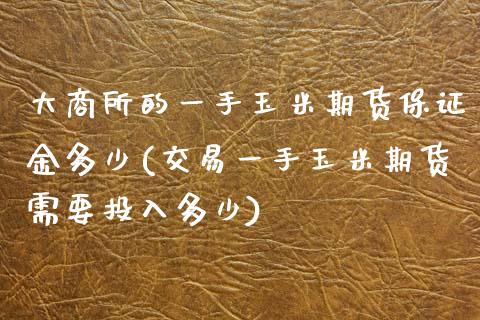 大商所的一手玉米期货保证
金多少(交易一手玉米期货
需要投入多少)